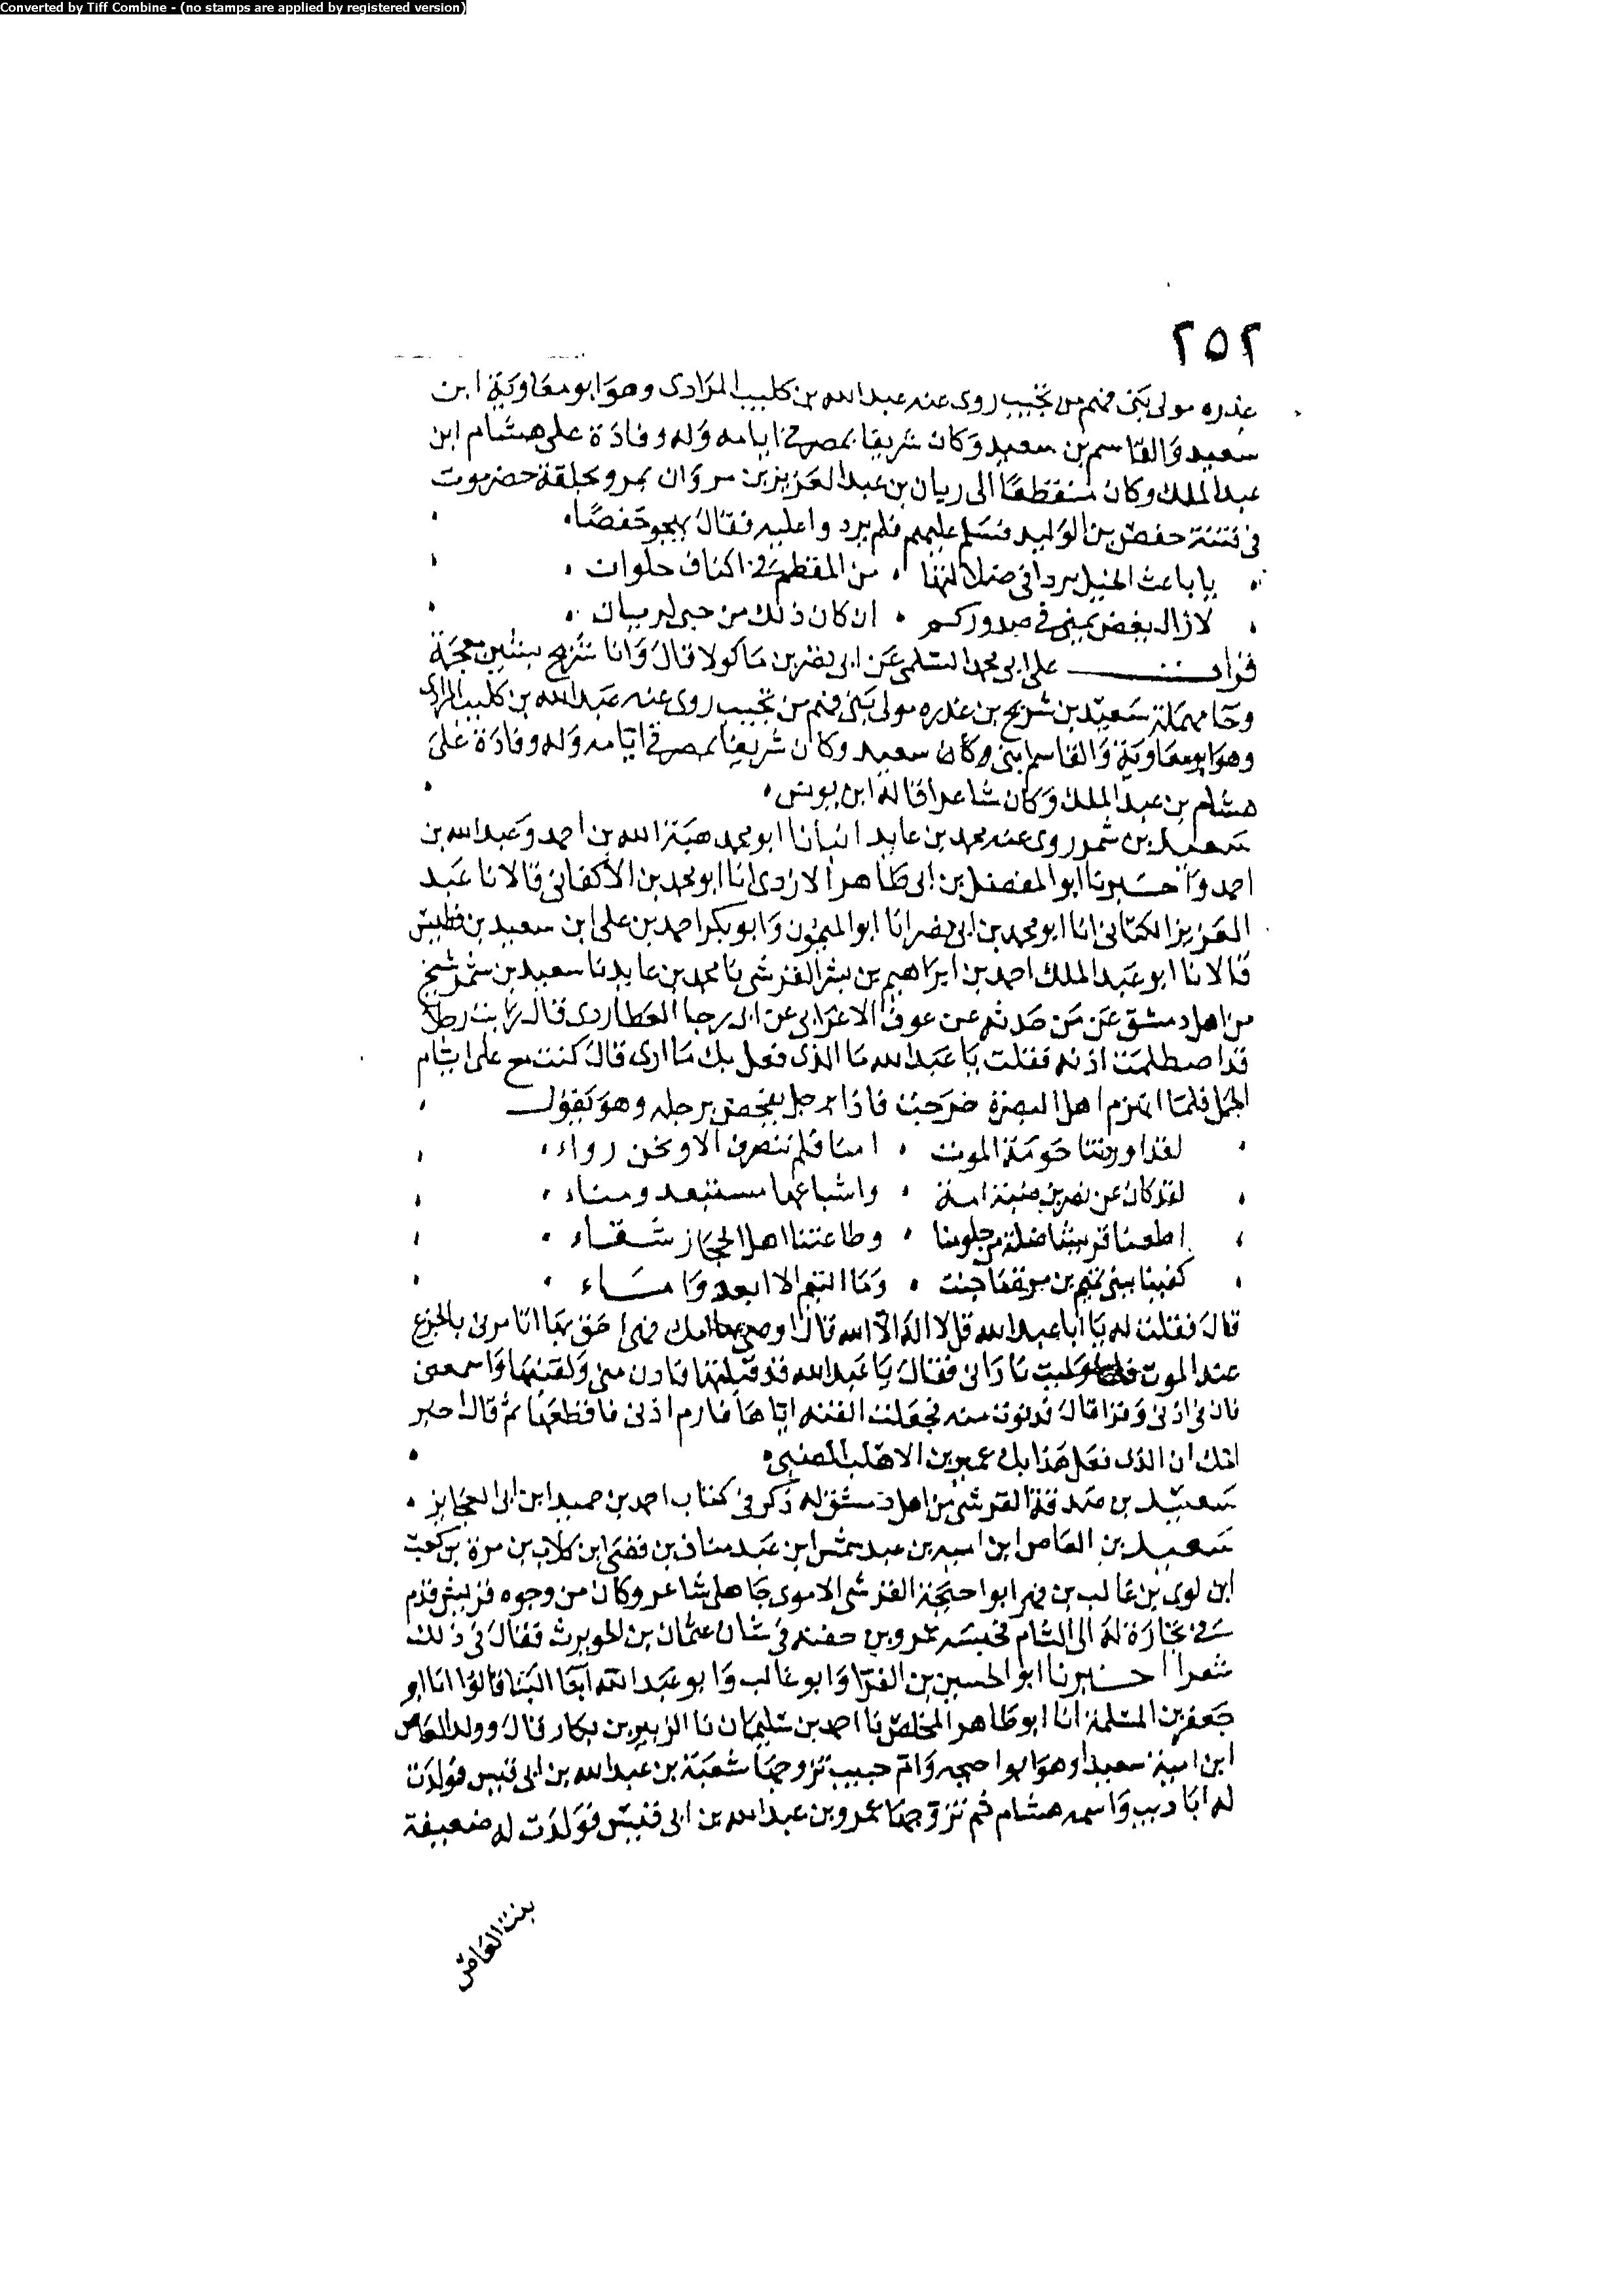 Converted by Tiff Combine - (no stamps are applied by registered version)
٢٥٢
عذره مولى بنى فهم من تجيب روى عنه عبد الله بن كليب المرادى وهو ابو معاوية ابن
سعيد والقاسم بن سعيد وكان شريفا بمصر فى ايامه وله وفادة على هشام ابن
عبد الملك وكان منقطعا الى ريان بن عبد العزيز بن مروان يمر وبحلقة حضرموت
فى فتنة حفص بن الوليد فسلم عليهم فلم يردوا عليه فقال يهجو حفصا
يا باعث الخيل تردى فى ضلالتها من المقطم فى اكناف حلوان
لازال بغض يمنى فى صدوركم ان كان ذلك من حبى لريان
قرات على ابى محمد السلمى عن ابى نصر بن ماكولا قال وانا شريح بشين معجمة
وحا مهملة سعيد بن شريح بن عذره مولى بنى فهم من تجيب روى عنه عبد الله بن كليب المرادى
وهو ابو معاوية والقاسم بنى وكان سعيد وكان شريفا بمصر فى ايامه وله وفادة على
هشام بن عبد الملك وكان شاعرا قاله ابن يونس
سعيد بن شمر روى عنه محمد بن عايد انبانا ابو محمد هبة الله بن احمد وعبد الله بن
احمد واخبرنا ابو المفضل بن ابى طاهر الازدى انا ابو محمد بن الاكفانى قالا نا عبد
العزيز الكتانى انا ابو محمد بن ابى نصر انا ابو الميمون وابو بكر احمد بن على ابن سعيد بن فطيس
قالا نا ابو عبد الملك احمد بن ابراهيم بن بشر القرشى نا محمد بن عايد نا سعيد بن شمر شيخ
من اهل دمشق عن من حدثه عن عوف الاعرابى عن ابى رجا العطاردى قال رايت رجلا
قد اصطلمت اذنه فقلت يا عبد الله ما الذى فعل بك ما ارى قال كنت مع على ايام
الجمل فلما انهزم اهل البصرة خرجت فاذا برجل يفحص برجله وهو يقول
لقد اوردتنا حومة الموت امنا فلم ننصرف الا ونحن رواء
لقد كان عن نصر بن ضبة امه واشياعها مستبعد ومناء
اطعنا قريشا ضلة من حلومنا وطاعتنا اهل الحجاز شقاء
كفينا بنى تيم بن مرة ما جنت وما التيم الا اعبد واماء
قال فقلت له يا ابا عبد الله قل لا اله الا الله قال اوصى بها امك فهى احق بها اتامرنى بالجزع
عند الموت فلما وليت نادانى فقال يا عبد الله قد قبلتها فادن منى ولقنيها واسمعنى
فان فى اذنى وقرا قال فدنوت منه فجعلت القنه اياها فارم اذنى فاقتطعها ثم قال اخبر
امك ان الذى فعل هذا بك عمير بن الاهلب الضبى
سعيد بن صدقة القرشى من اهل دمشق له ذكر فى كتاب احمد بن حميد ابن ابى العجايز
سعيد بن العاص ابن اميه بن عبد شمس ابن عبد مناف بن قصى ابن كلاب بن مرة بن كعب
ابن لوى بن غالب بن فهر ابو احيحة القرشى الاموى جاهلى شاعر وكان من وجوه قريش قدم
فى تجارة له الى الشام فحبسه عمرو بن جفنه فى شان عثمان بن الحويرث فقال فى ذلك
شعرا اخبرنا ابو الحسين بن الفرا وابو غالب وابو عبد الله ابنا البنا قالوا انا ابو
جعفر بن المسلمة انا ابو طاهر المخلص نا احمد بن سليمان نا الزبير بن بكار قال وولد العاص
ابن امية سعيدا وهو ابو احيحه وام حبيب تزوجها شعبة بن عبد الله بن ابى قيس فولدت
له ابا ديب واسمه هشام ثم تزوجها عمرو بن عبد الله بن ابى قيس فولدت له ضعيفة
بنت العاص